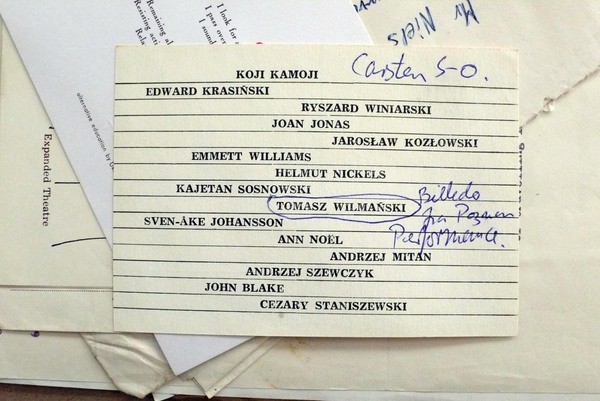 I look for
I pass over
I sound
Remaining al
Resisting acti
Rela
alternative education by G
Expanded Theatre
Mr Niels
Carsten S-O.
KOJI KAMOJI
EDWARD KRASIŃSKI
RYSZARD WINIARSKI
JOAN JONAS
JAROSŁAW KOZŁOWSKI
EMMETT WILLIAMS
HELMUT NICKELS
KAJETAN SOSNOWSKI
TOMASZ WILMAŃSKI
Billede
fra Poznan
Performance.
SVEN-ÅKE JOHANSSON
ANN NOËL
ANDRZEJ MITAN
ANDRZEJ SZEWCZYK
JOHN BLAKE
CEZARY STANISZEWSKI